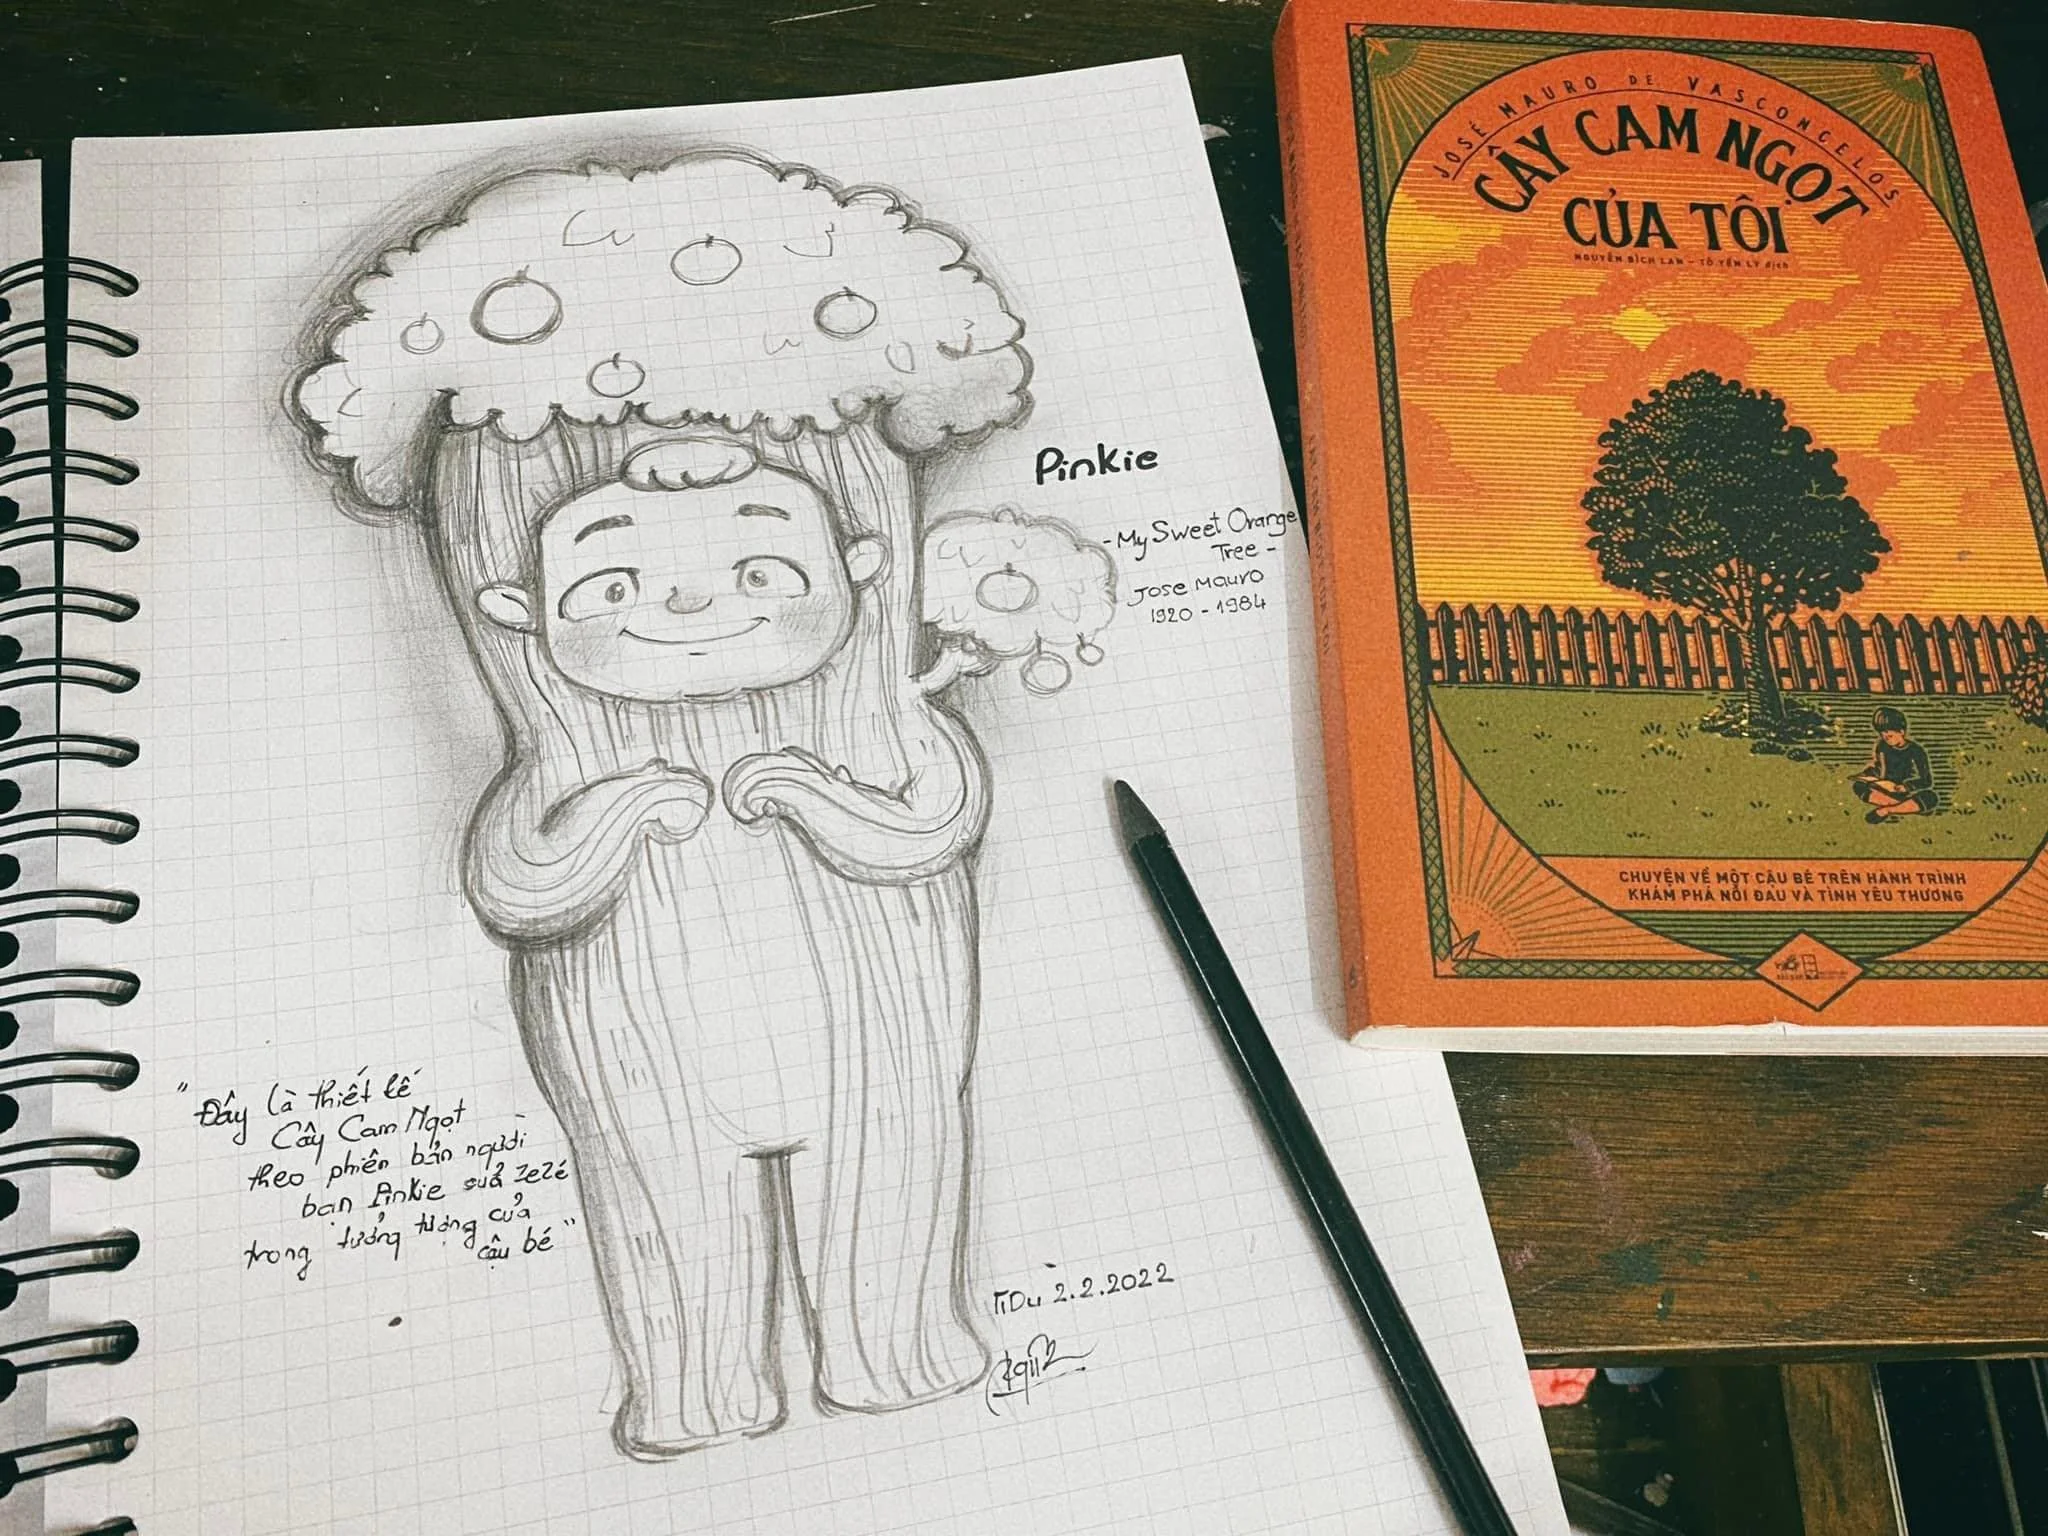 Pinkie
- My Sweet Orange
Tree -
Jose Mauro
1920 - 1984
"Đây là thiết kế
Cây Cam Ngọt
theo phiên bản người
bạn Pinkie suả Zezé
trong tưởng tượng của
cậu bé"
TiDu 2.2.2022
JOSÉ MAURO DE VASCONCELOS
CÂY CAM NGỌT
CỦA TÔI
NGUYỄN BÍCH LAN - TÔ YẾN LY dịch
CHUYỆN VỀ MỘT CẬU BÉ TRÊN HÀNH TRÌNH
KHÁM PHÁ NỖI ĐAU VÀ TÌNH YÊU THƯƠNG